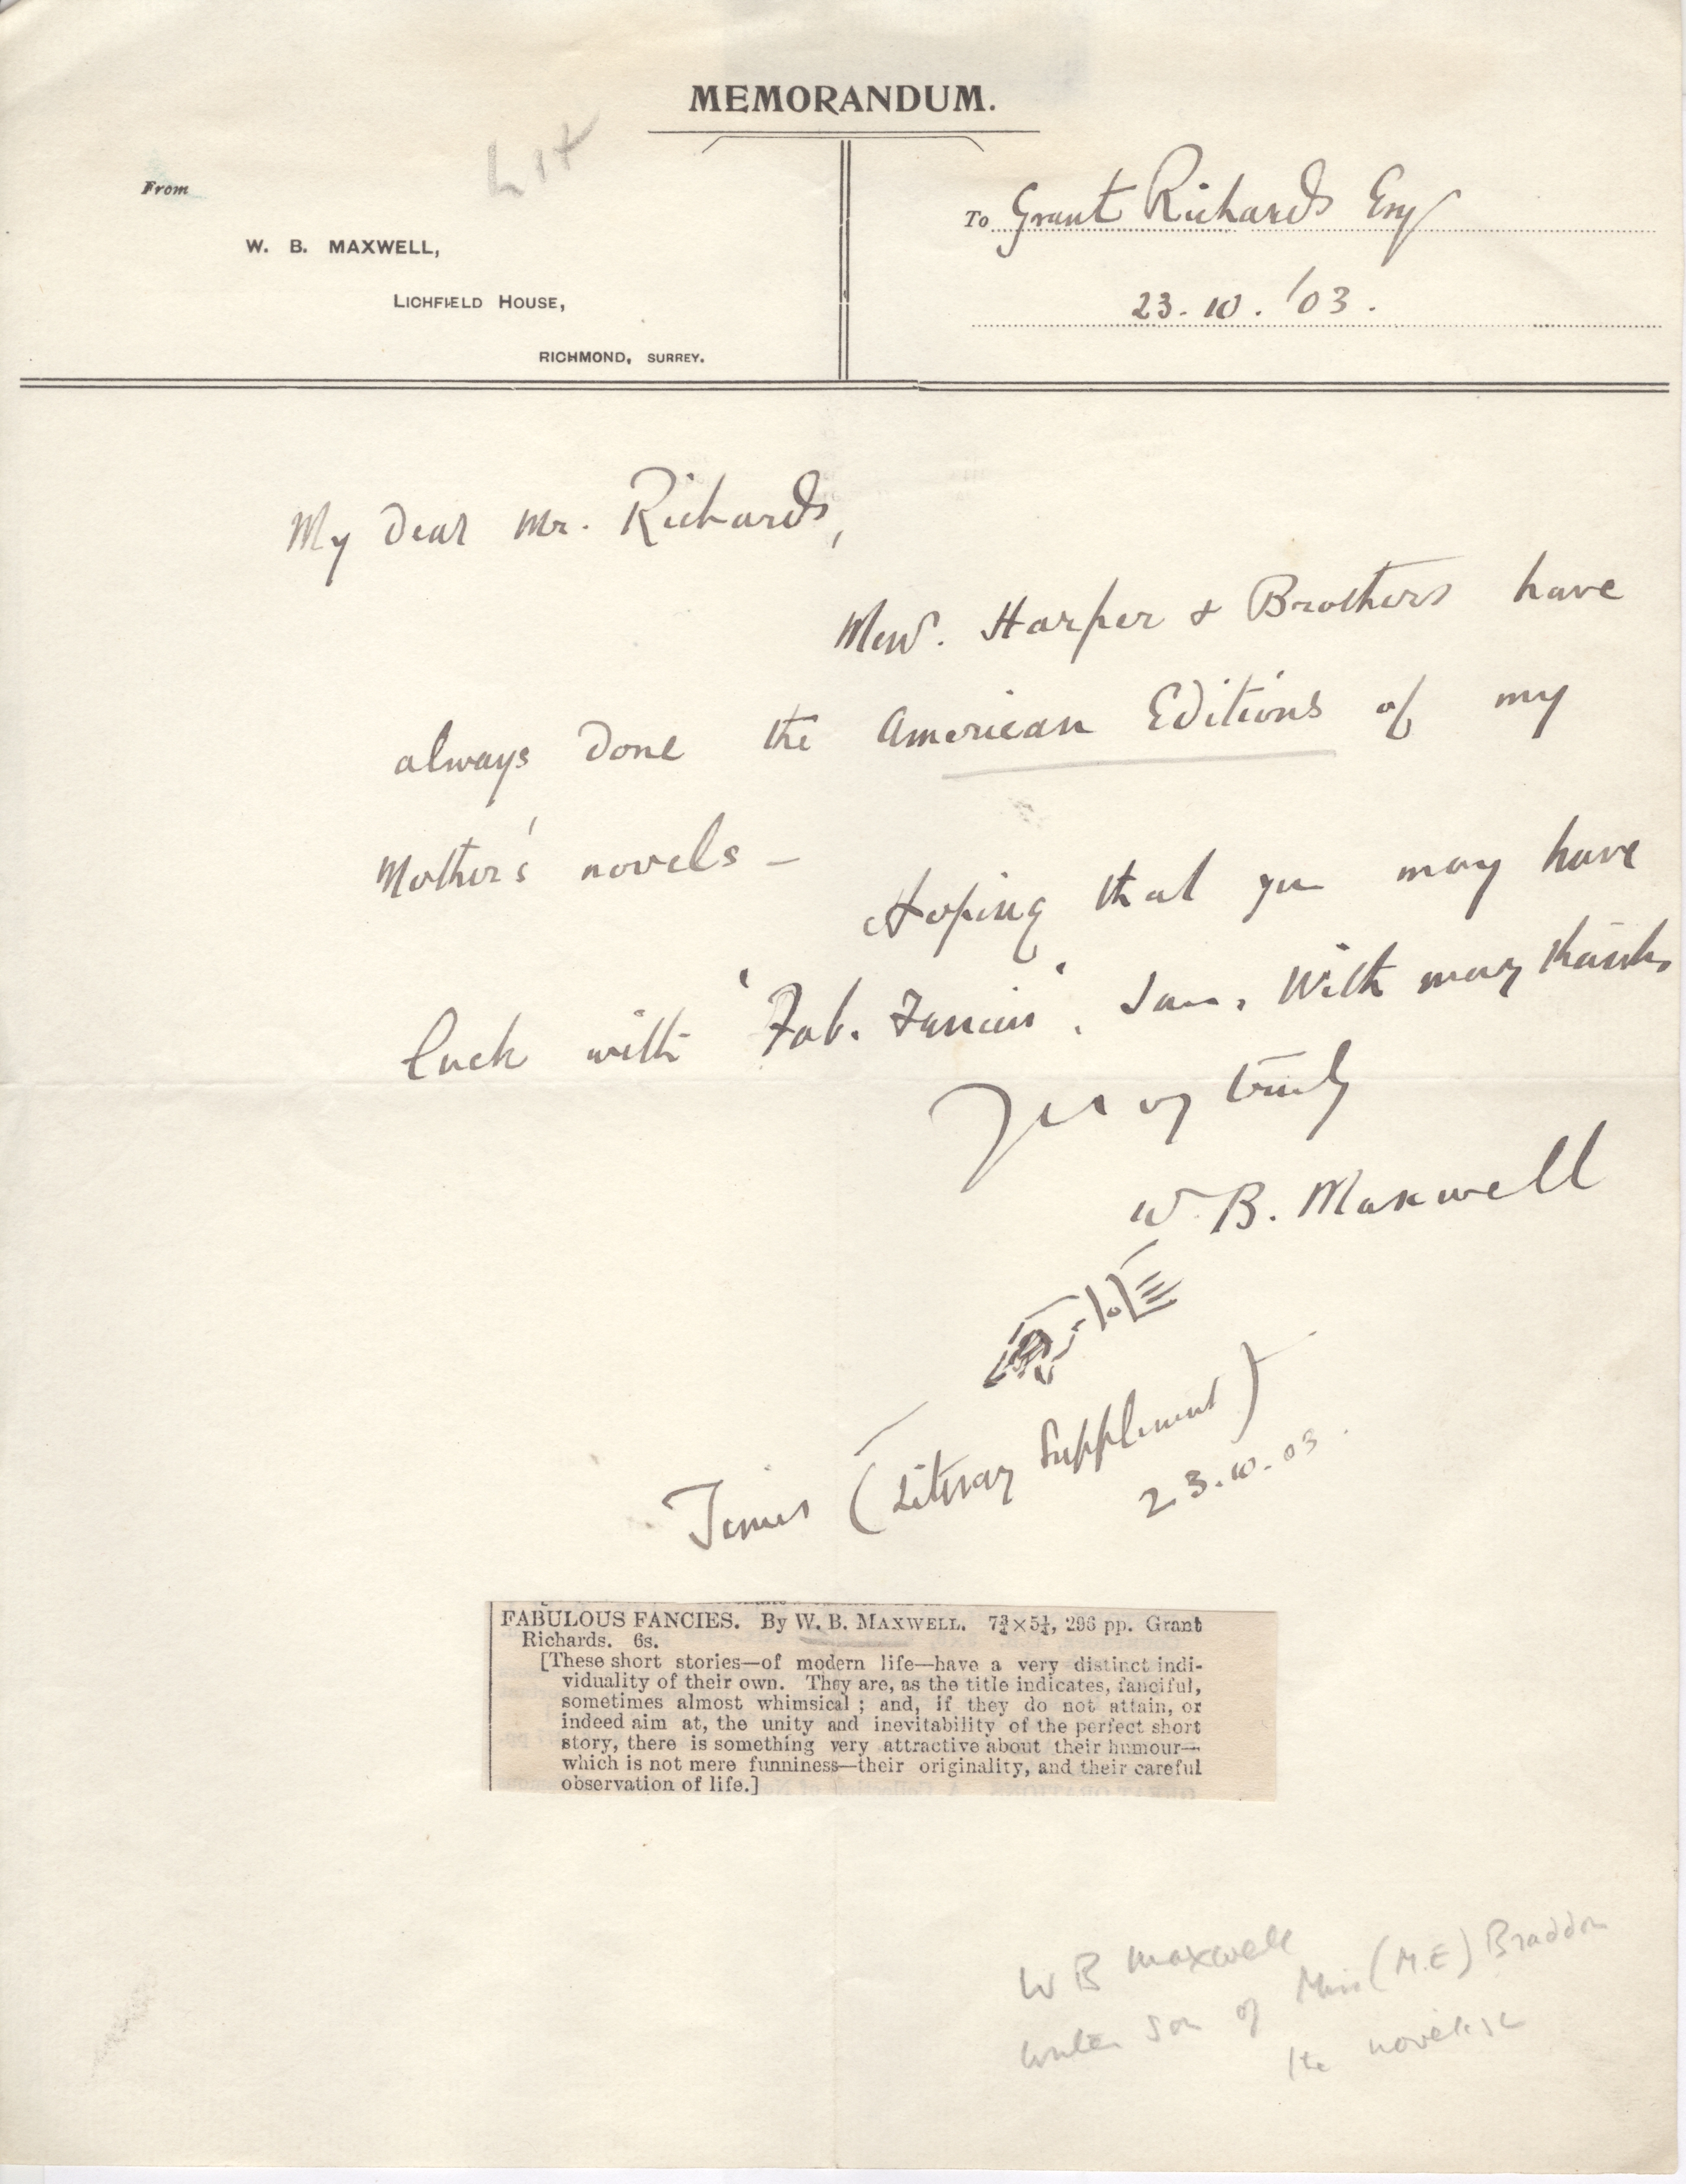 MEMORANDUM.
Lit
From
W. B. MAXWELL,
LICHFIELD HOUSE,
RICHMOND, SURREY.
To Grant Richards Esq
23. 10. '03.
My Dear Mr. Richards,
Messrs. Harper & Brothers have
always done the American Editions of my
Mother's novels –
Hoping that you may have
luck with 'Fab. Fancies'. I am, With many thanks
Yours very truly
W. B. Maxwell
Times (Literary Supplement)
23.10.03.
FABULOUS FANCIES. By W. B. MAXWELL. 7¾×5¼, 296 pp. Grant
Richards. 6s.
[These short stories—of modern life—have a very distinct indi-
viduality of their own. They are, as the title indicates, fanciful,
sometimes almost whimsical; and, if they do not attain, or
indeed aim at, the unity and inevitability of the perfect short
story, there is something very attractive about their humour—
which is not mere funniness—their originality, and their careful
observation of life.]
W B Maxwell
writer son of Miss (M.E) Braddon
the novelist